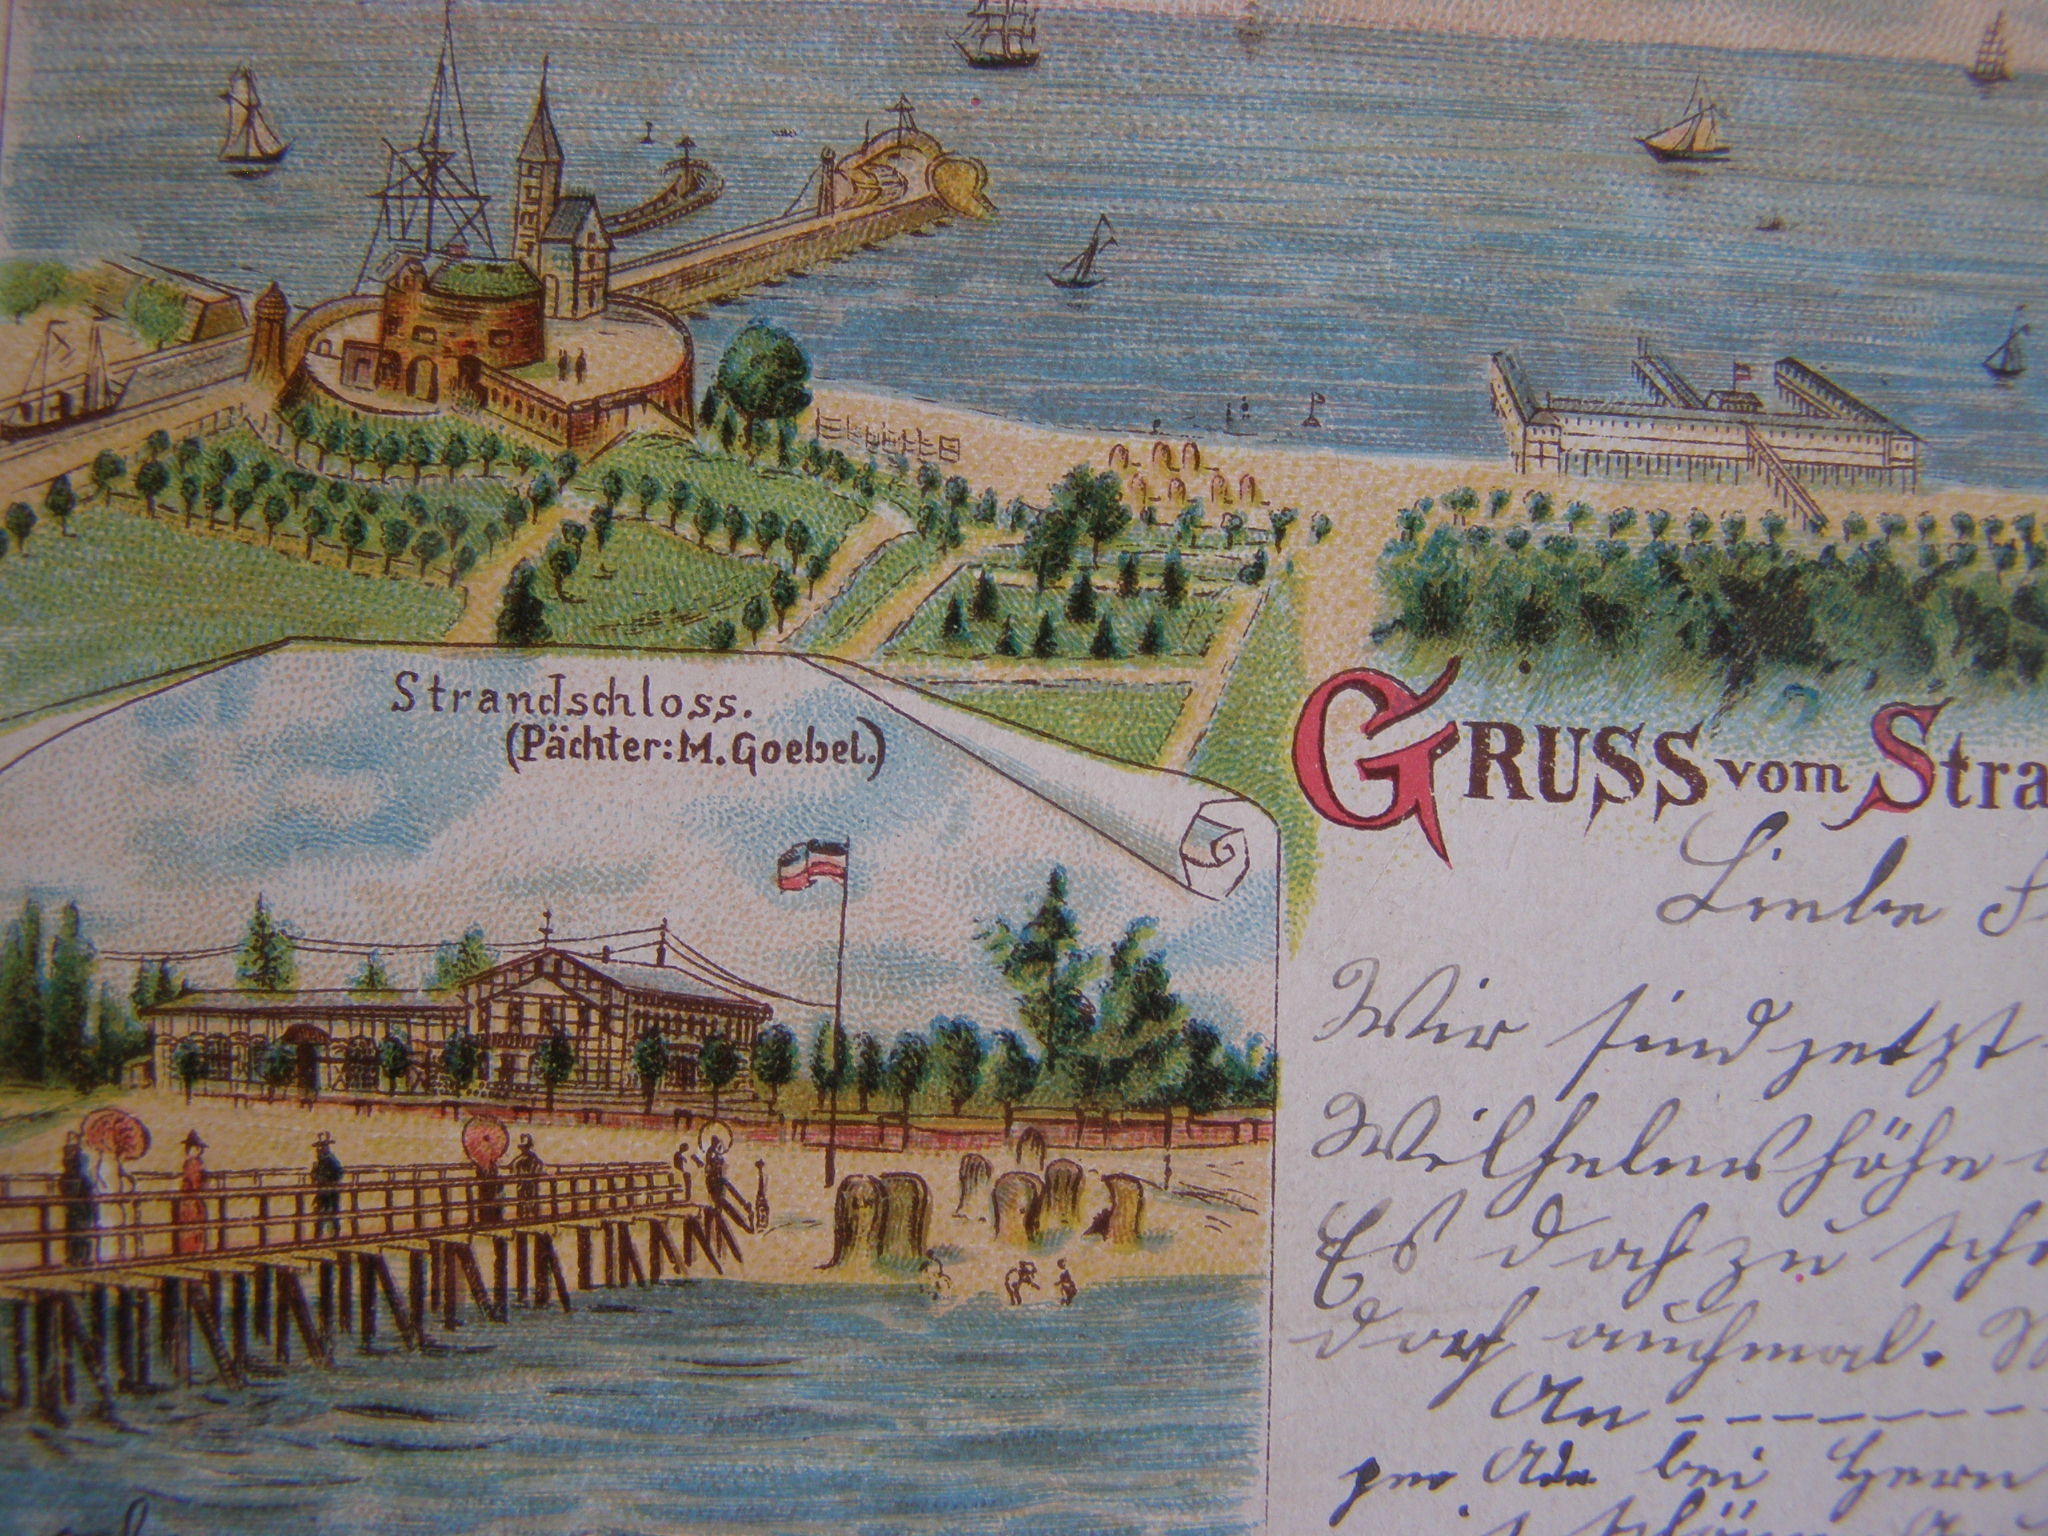 Strandschloss.
(Pächter: M. Goebel.)
GRUSS vom Stra
Liebe
Wir sind jetzt
Wilhelmshöhe
Es doch zu sch
doch auchmal.
An
per Adr bei Herrn